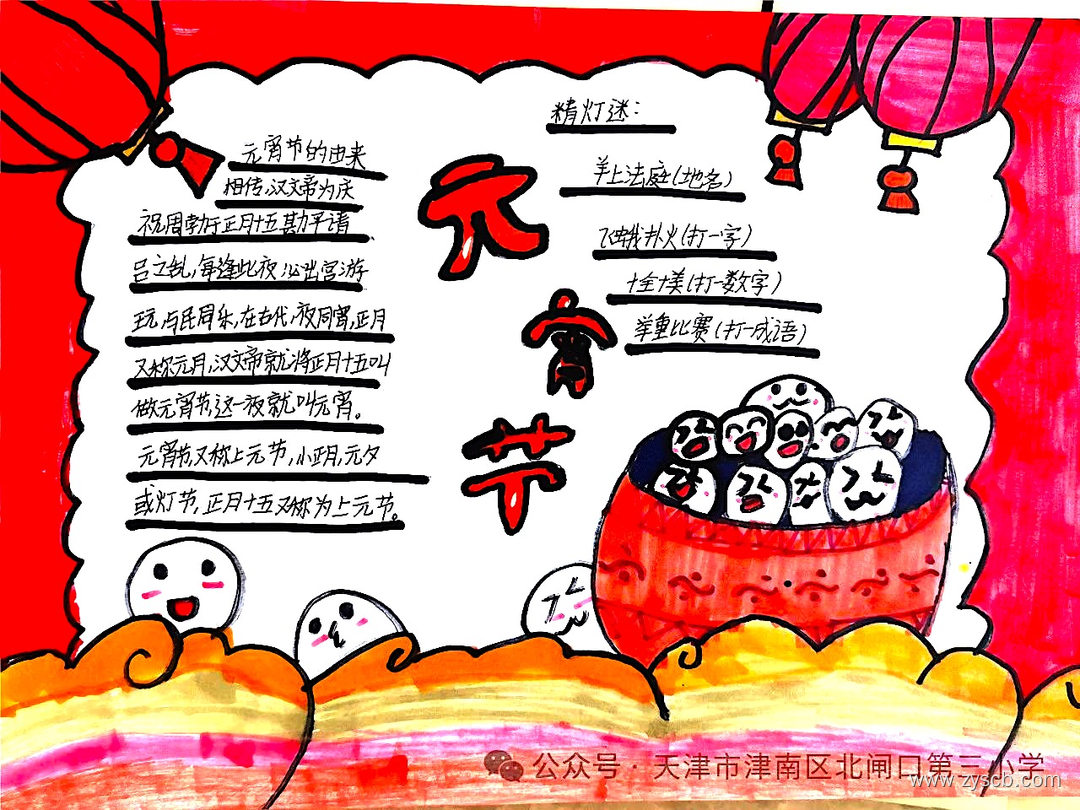 元宵节的由来
相传,汉文帝为庆
祝周勃于正月十五勘平诸
吕之乱,每逢此夜,必出宫游
玩,与民同乐,在古代,夜同宵,正月
又称元月,汉文帝就将正月十五叫
做元宵节,这一夜就叫元宵。
元宵节,又称上元节,小正月,元夕
或灯节,正月十五又称为上元节。
元
宵
节
精灯迷:
羊上法庭(地名)
飞蛾扑火(打一字)
十全十美(打一数字)
举重比赛(打一成语)
公众号·天津市津南区北闸口第三小学
www.zyscb.com